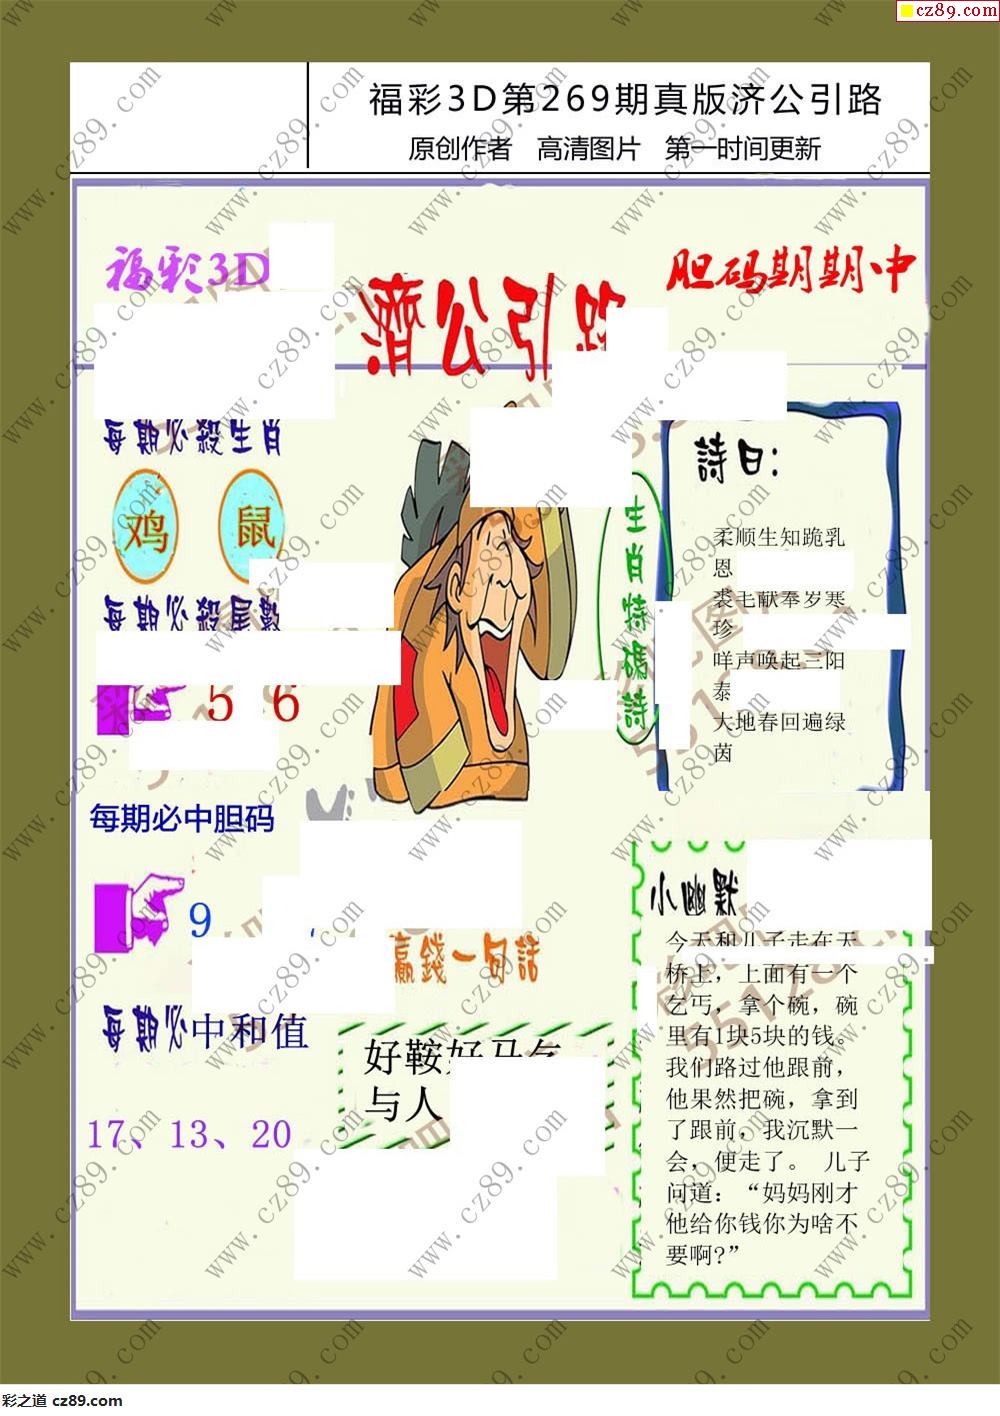 cz89.com
福彩3D第269期真版济公引路
原创作者 高清图片 第一时间更新
福彩3D
胆码期期中
濟公引路
每期必殺生肖
鸡 鼠
每期必殺尾數
5 6
每期必中胆码
9
每期必中和值
17、13、20
生肖特碼詩
詩曰：
柔顺生知跪乳
恩
裘毛献奉岁寒
珍
咩声唤起三阳
泰
大地春回遍绿
茵
贏錢一句話
好鞍好马气
与人
小幽默
今天和儿子走在天
桥上，上面有一个
乞丐，拿个碗，碗
里有1块5块的钱。
我们路过他跟前，
他果然把碗，拿到
了跟前，我沉默一
会，便走了。 儿子
问道：“妈妈刚才
他给你钱你为啥不
要啊?”
www.cz89.com
彩之道 cz89.com